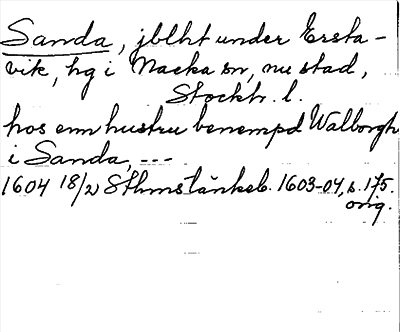 Sanda, jblht under Ersta-
vik, hg i Nacka sn, nu stad,
Stockh. l.
hos enn hustru benempd Walborgh
i Sanda, ---
1604 18/2 Sthmstänkeb. 1603-04, s. 175.
orig.